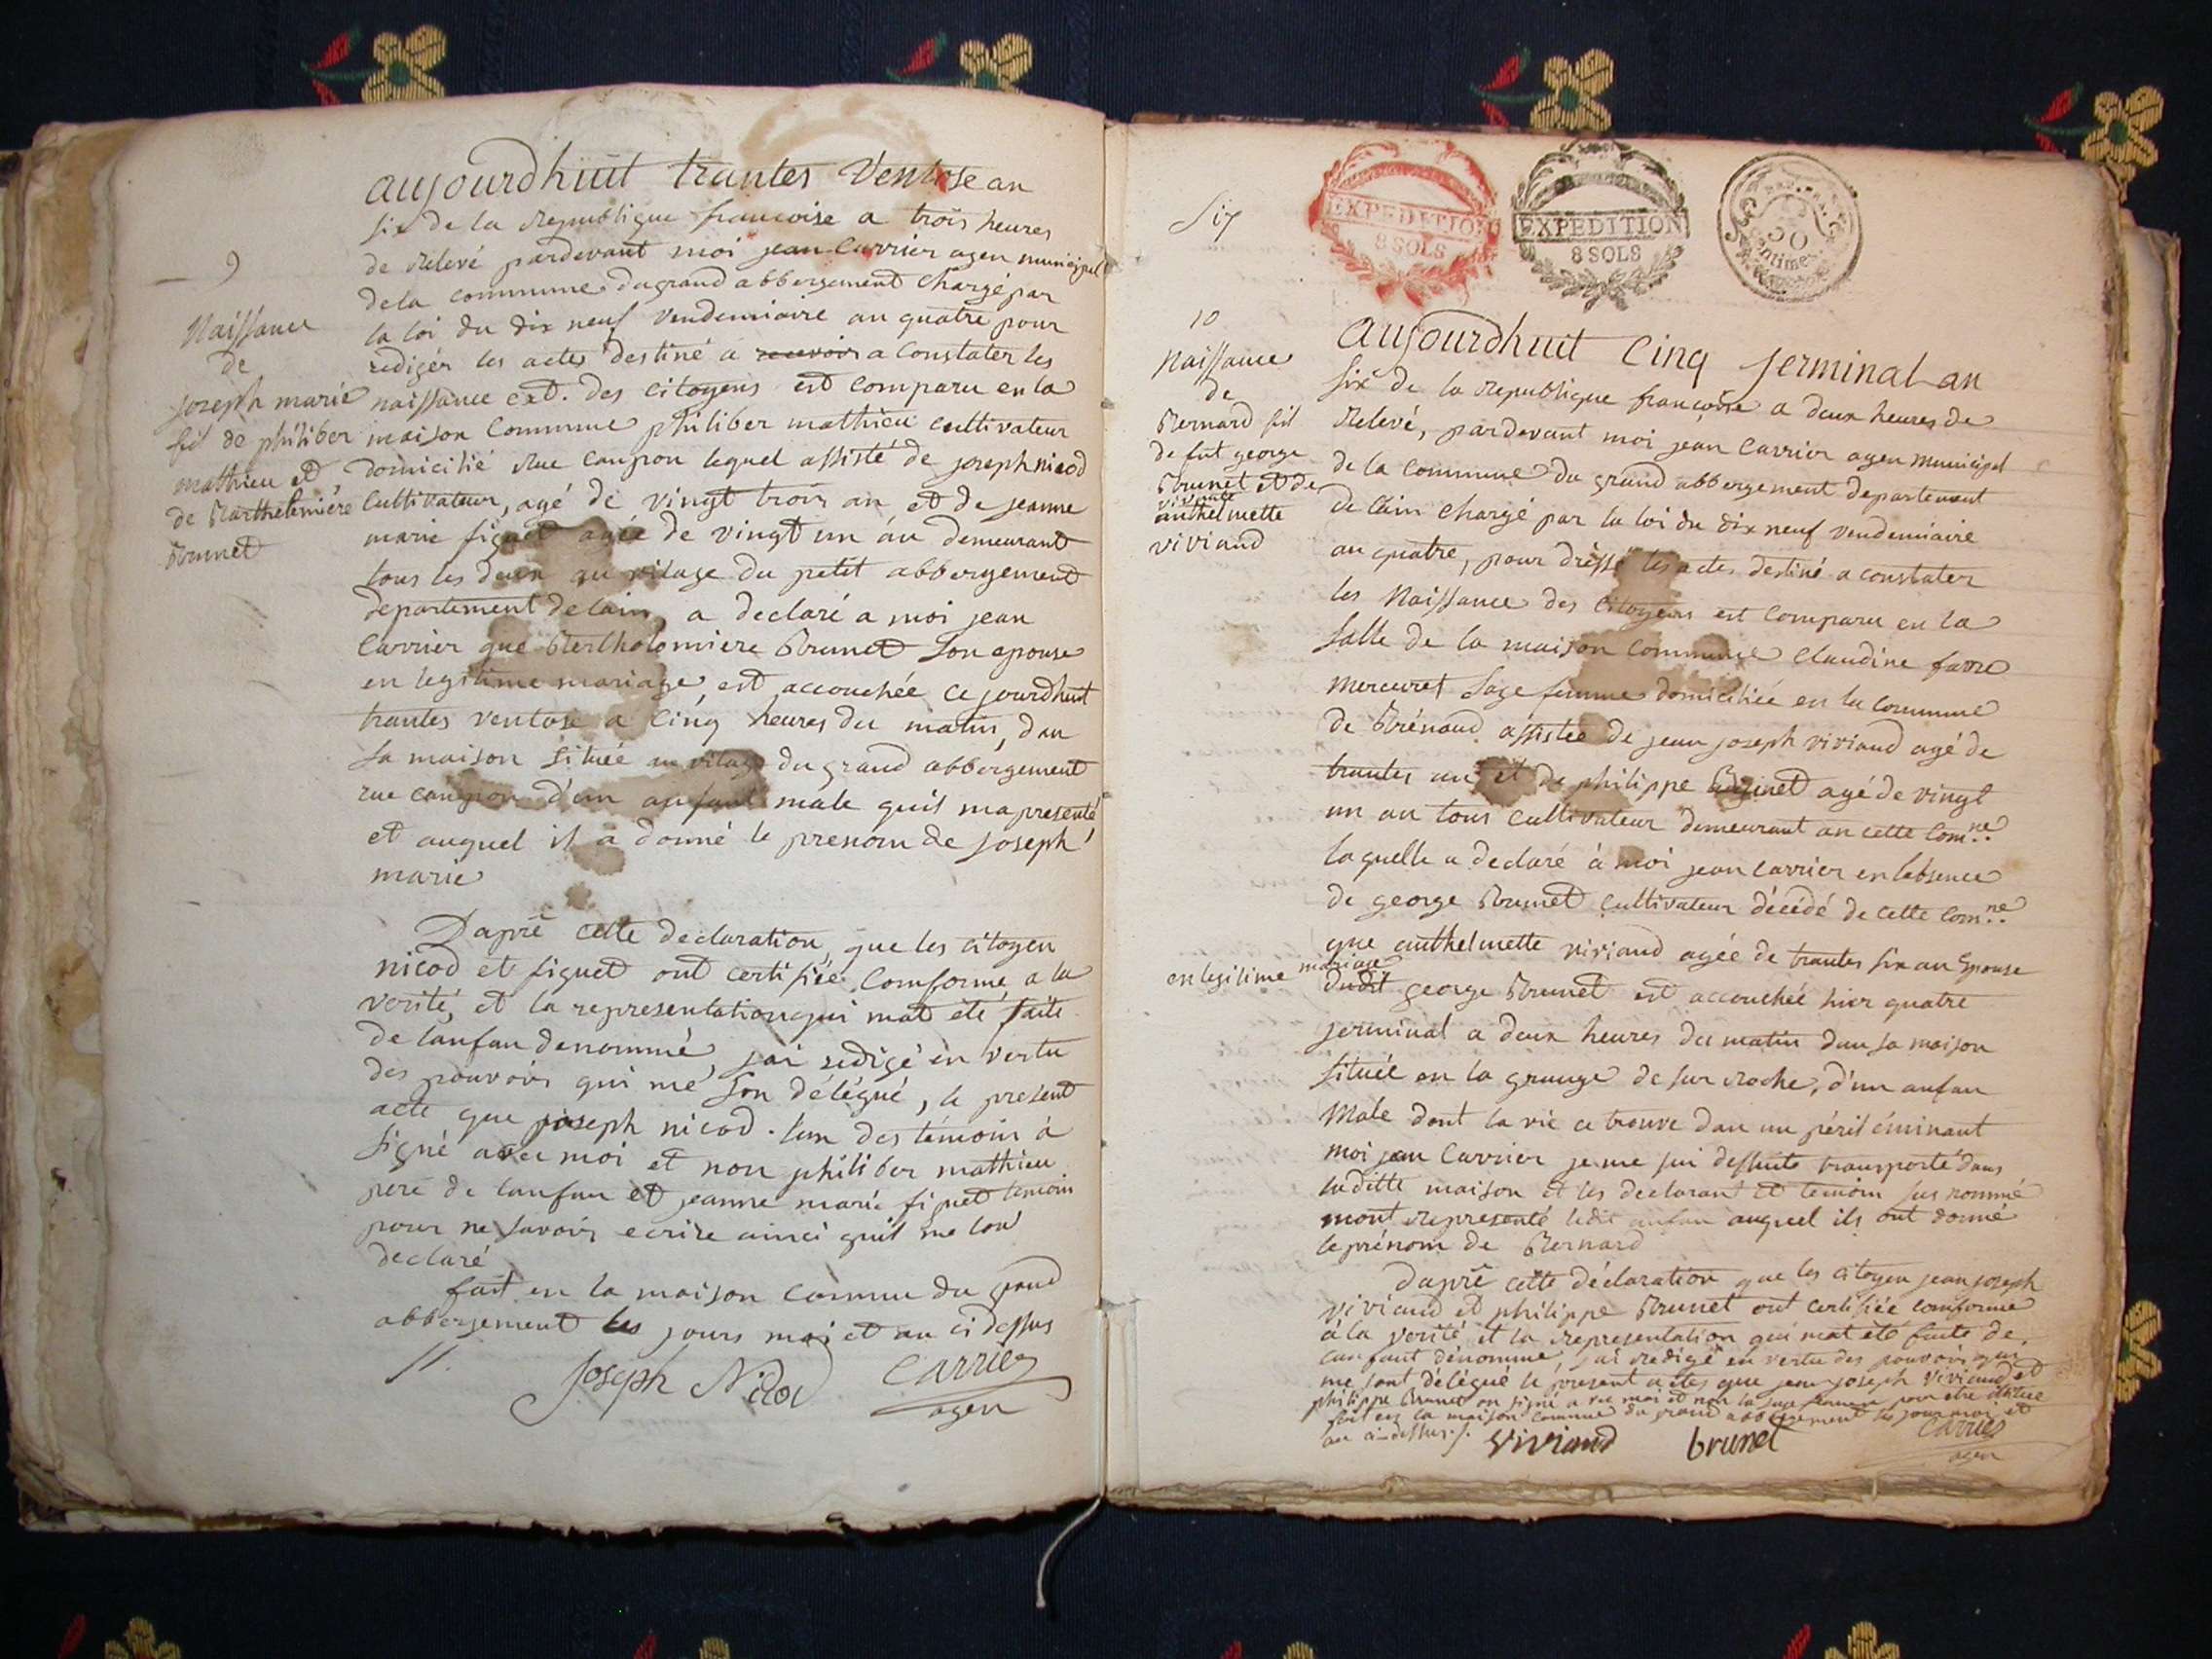 aujourdhuit trantes Ventose an
six de la Republique francoise a trois heures
de Relevé pardevant moi jean Carrier agen municipal
de la commune du grand abbergement chargé par
la loi du dix neuf vendemiaire an quatre pour
redigér les actes destiné a recevoir a constater les
naissance ext. des citoyens est comparu en la
maison Commune philiber mathieu cultivateur
domicilié Rue caupon lequel assisté de joseph nicod
cultivateur, agé de vingt trois an et de jeanne
marie figuet agée de vingt un an demeurant
tous les deux au vilage du petit abbergement
departement de lain, a declaré a moi jean
Carrier que Bertholomiere Brunet son epouse
en legitime mariage, est accouchée ce jourdhuit
trantes ventose a cinq heures du matin, dan
sa maison située au vilage du grand abbergement
rue caupon d'un anfant male quil ma presenté
et auquel il a donné le prenom de joseph
marie
Daprè cette declaration, que les citoyen
nicod et figuet ont certifiée comforme a la
verité, et la representation qui mat été faite
de lanfan denommé, jai redigé en vertu
des pouvoirs qui me son délégué, le present
acte que joseph nicod. lun des témoins à
signé avec moi et non philiber mathieu
pere de lanfan et jeanne marie figuet temoin
pour ne savoir ecrire ainci quil me lon
declaré
fait en la maison commu du grand
abbergement les jours moi et an ci dessus
Joseph Nicod Carrier
agen
9
Naissance
de
joseph marie
fil de philiber
mathieu et
de Barthelemiére
Brunet
six
EXPEDITION
8 SOLS
EXPEDITION
8 SOLS
50
centimes
10
Naissance
de
Bernard fil
de fut george
Brunet et de
anthelmette
viviand
aujourdhuit Cinq jerminal an
six de la Republique françoise a deux heures de
Relevé, pardevant moi jean Carrier agen municipal
de la commune du grand abbergement departement
de lain chargé par la loi du dix neuf vendemiaire
an quatre, pour dressé les actes destiné a constater
les Naissance des citoyens est comparu en la
salle de la maison commune Claudine favre
mercuret sage femme domiciliée en la commune
de Brénaud assistée de jean joseph viviand agé de
trantes an et de philippe Brunet agé de vingt
un an tous cultivateur demeurant an cette Com.ne
laquelle a declaré à moi jean carrier en labsence
de george Brunet cultivateur décédé de cette Com.ne
que anthelmette viviand agée de trantes six an Epouse
en legitime mariage
dudit george Brunet est accouchée hier quatre
jerminal a deux heures du matin dan sa maison
située en la grange de sur Roche, d'un anfan
Male dont la vie ce trouve dan un péril éminant
moi jean Carrier je me sui dessuite transporté dans
laditte maison et les declarant et temoin sus nommé
mont Representé ledit anfan auquel ils ont donné
le prénom de Bernard
daprè cette déclaration que les citoyen jean joseph
viviand et philippe Brunet ont certifiée comforme
à la verité et la Representation qui mat été faite de
lanfant dénommé, jai Redigé en vertu des pouvoirs qui
me sont délégué le present actes que jean joseph viviand et
philippe Brunet on signé a vec moi et non la sage femme pour etre illitrée
fait en la maison commune du grand abbergement les jour moi et
an ci-dessus./.
viviand brunet Carrier
agen